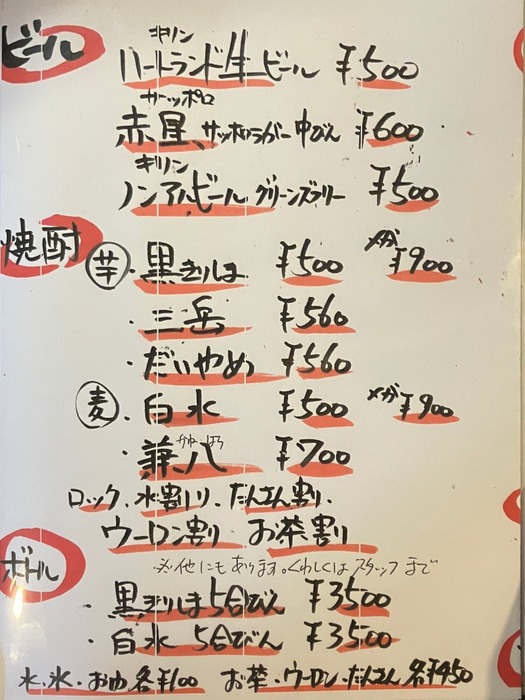 ビール
キリン
ハートランド生ビール ¥500
サッポロ
赤星、サッポロラガー中びん ¥600
キリン
ノンアルビール グリーンズフリー ¥500
焼酎
芋・黒きりしま ¥500 メガ¥900
・三岳 ¥560
・だいやめ ¥560
麦・白水 ¥500 メガ¥900
かねはち
・兼八 ¥700
ロック、水割り、たんさん割り、
ウーロン割り お茶割り
※他にもあります。くわしくはスタッフまで
ボトル
・黒きりしま5合びん ¥3500
・白水 5合びん ¥3500
水・氷・お湯 各¥100 お茶・ウーロン・たんさん 各¥450